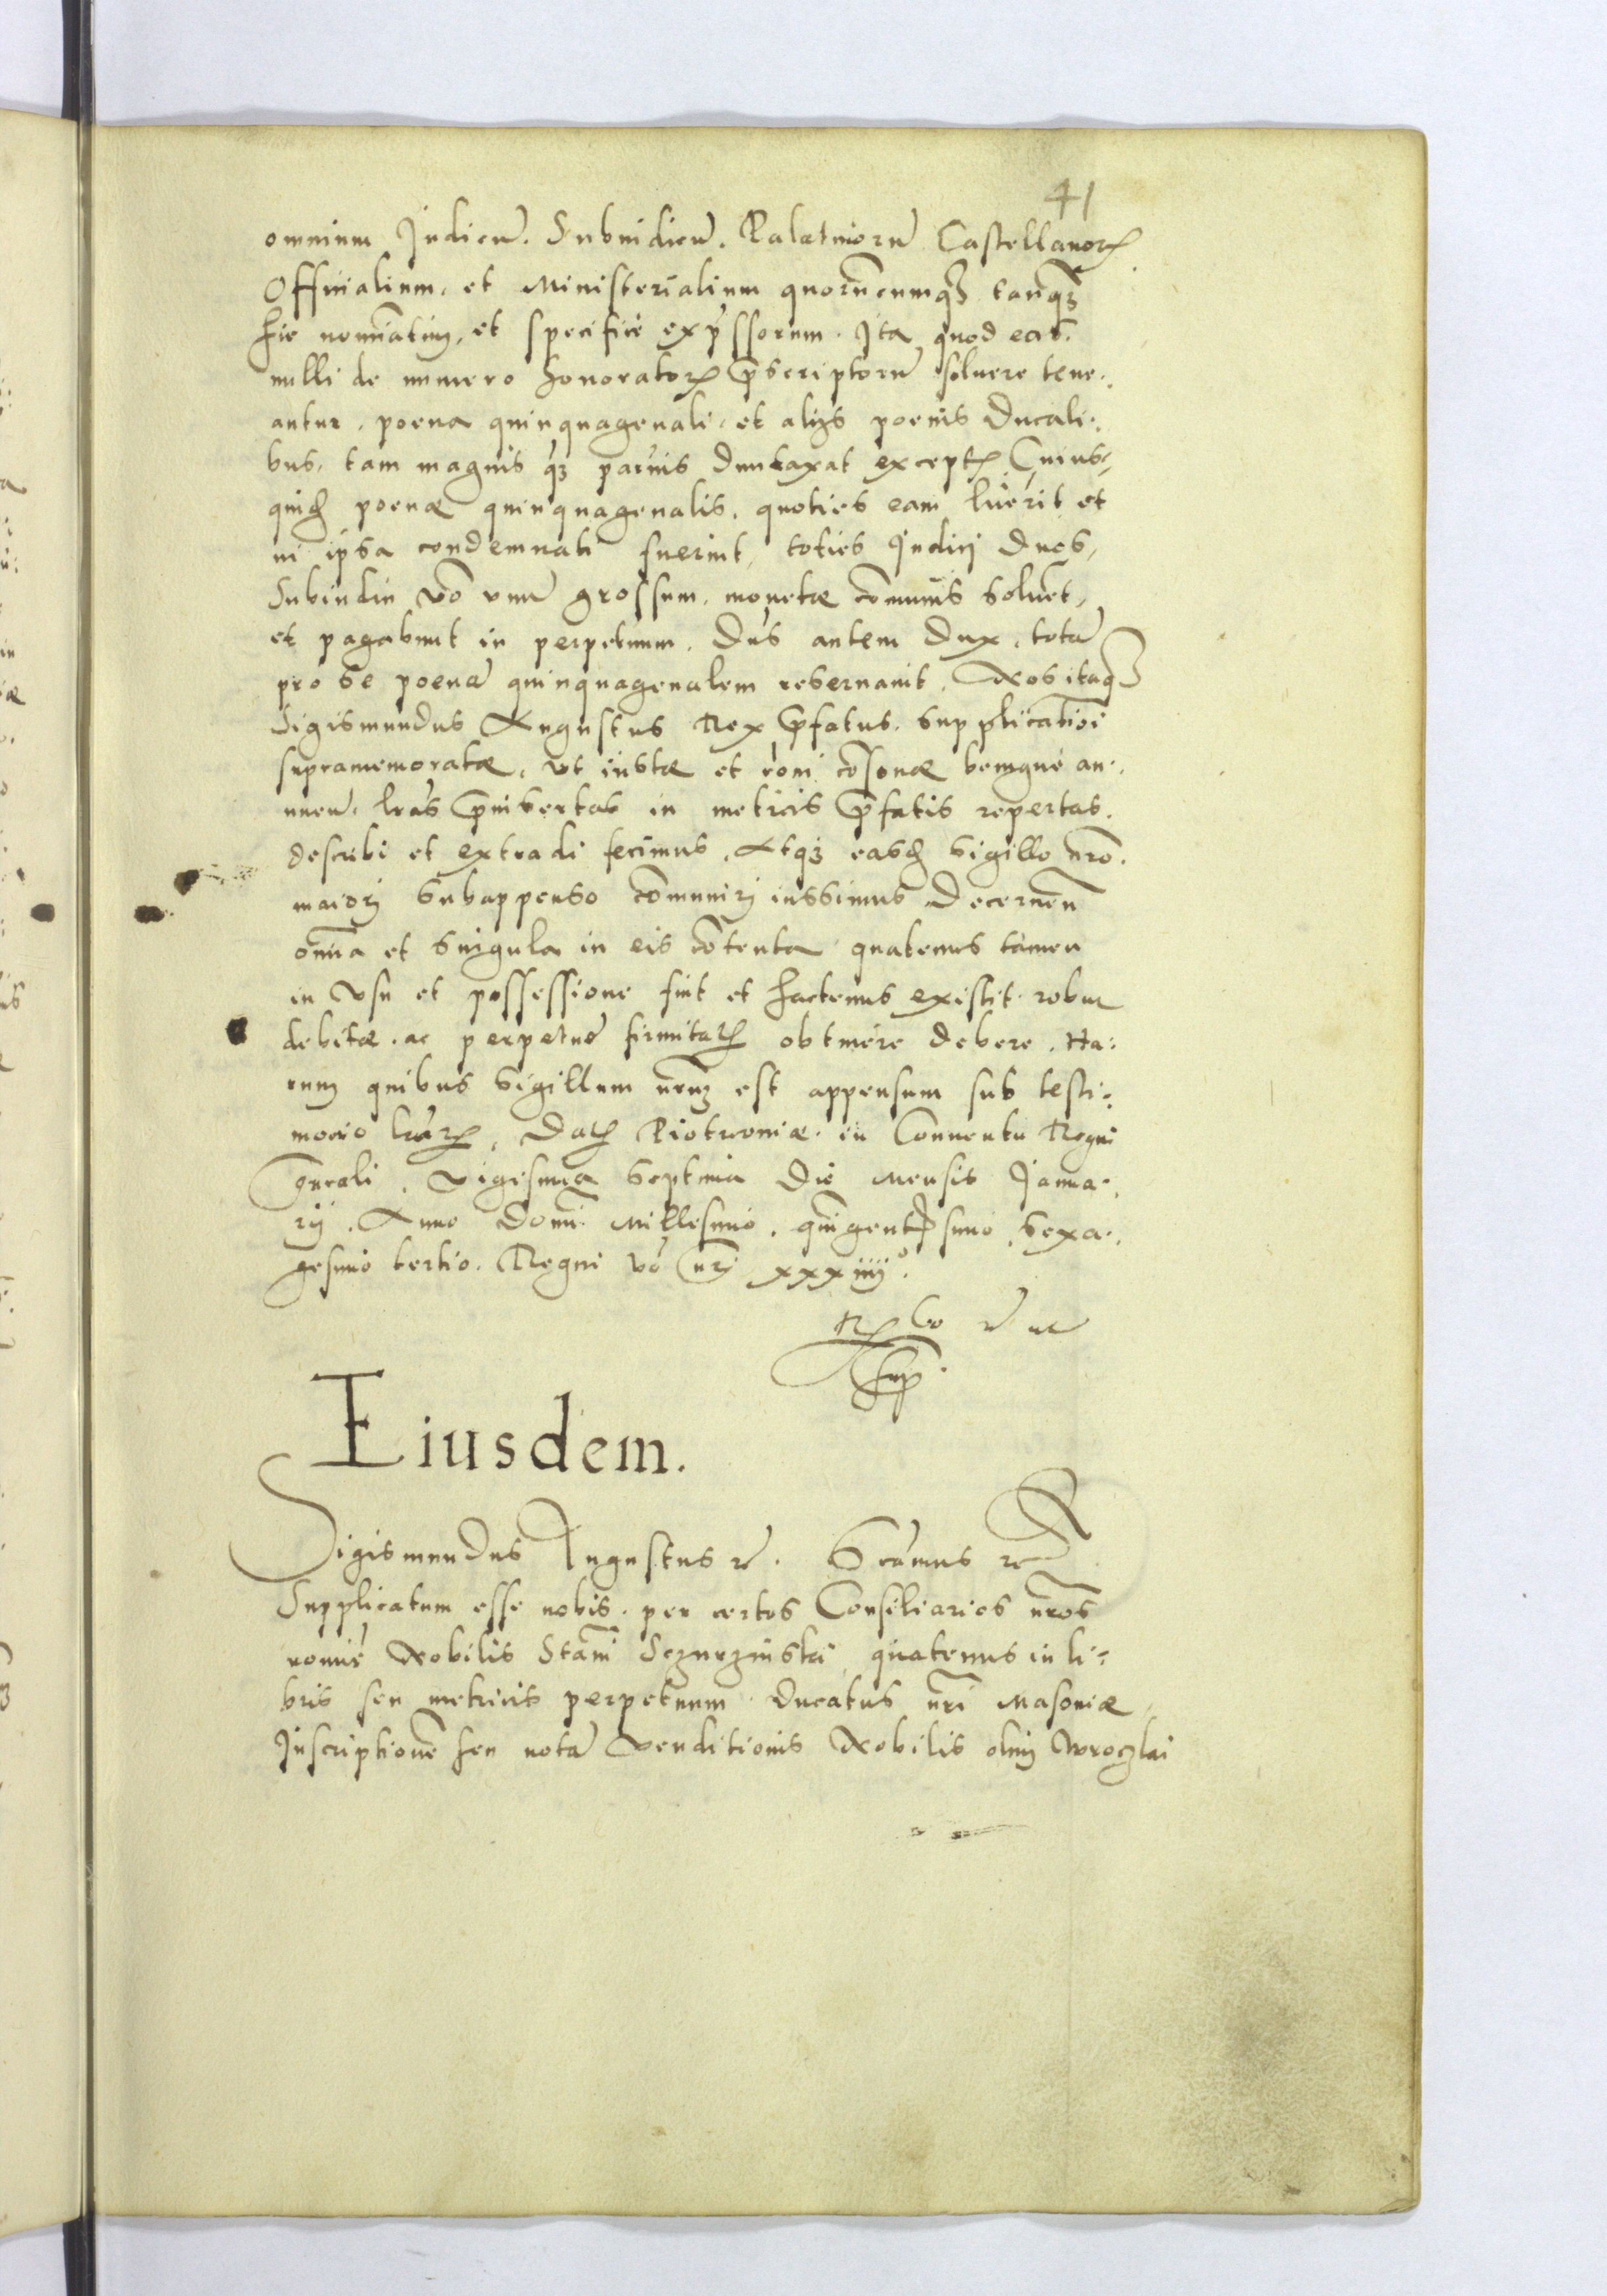 41
omnium Judicũ. Subiudicũ. Palatinorũ Castellanorꝝ
Officialium, et Ministerialium quorũcumqꝫ tanqꝫ
hic nominãtim, et specifice exp̃ssorum. Ita quod eas.
nulli de numero honoratorꝝ p̃scriptorũ soluere tene..
antur. poena quinquagenali, et alijs poenis Ducali..
bus, tam magnis qꝫ paruis duntaxat exceptꝭ Cuius-
quidẽ poenæ quinquagenalis. quoties eam luerit et
in ipsa condemnati fuerint, toties Judici duos,
Subiudici võ vnũ grossum, monetæ cõmunis soluẽt,
et pagabunt in perpetuum. Dñs autem Dux, totã
pro se poenã quinquagenalem reseruauit. Nos itaqꝫ
Sigismundus Augustus Rex p̃fatus. supplicatiõi
supramemoratæ, vt iustæ et rõni cõsonæ benigne an..
nuen. lr̃as p̃insertas in metricis p̃fatis repertas.
describi et extradi fecimus. Atqꝫ easdẽ sigillo nr̃o.
maiorj subappenso cõmunirj iussimus Decernen̄
om̃ia et singula in eis cõtenta quatenus tamen
in vsu et possessione sint et hactenus existit robur
debitæ. ac perpetuæ firmitatꝭ obtinere debere. Ha:
rum quibus sigillum nr̃um est appensum sub testi:
monio lr̃arꝝ. Datꝭ Piotrcouiæ. in Conuentu Regni
gñrali. vigesima septima die Mensis Janua..
rij. Anno Domi. Millesimo. quingentesimo sexa..
gesimo tertio. Regni vo nr̃j xxxiiij°.
Eiusdem.
Sigismundus Augustus &. Sc̃amus &
Supplicatum esse nobis. per certos Consiliarios nr̃os
nomie Nobilis Stani quatenus in li:
bris seu metricis perpetuum Ducatus nr̃i Masouiæ
Inscriptionẽ seu notã venditionis Nobilis olim Wroczlai